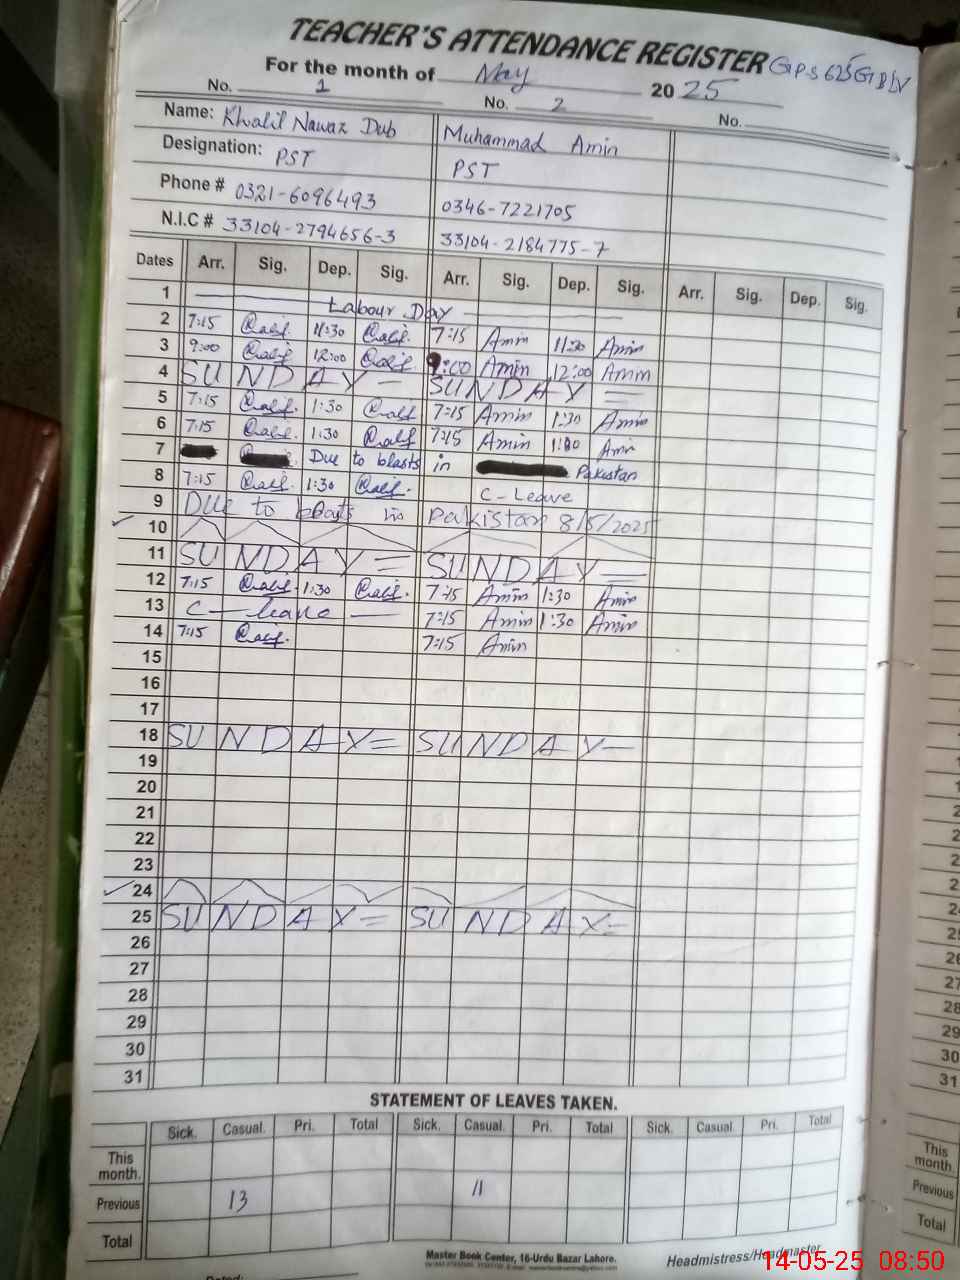 TEACHER'S ATTENDANCE REGISTER
For the month of May 2025
No. 1 No. 2 No.
Name: Khalil Nawaz Dub Muhammad Amin
Designation: PST PST
Phone # 0321-6096493 0346-7221705
N.I.C # 33104-2794656-3 33104-2184775-7
Dates Arr. Sig. Dep. Sig. Arr. Sig. Dep. Sig. Arr. Sig. Dep. Sig.
1 Labour Day
2 7:15 11:30 7:15 Amin 11:30 Amin
3 9:00 12:00 9:00 Amin 12:00 Amin
4 SUNDAY SUNDAY
5 7:15 1:30 7:15 Amin 1:30 Amin
6 7:15 1:30 7:15 Amin 1:30 Amin
7 Due to blasts in Pakistan
8 7:15 1:30 C-Leave
9 Due to blasts in Pakistan 8/5/2025
10
11 SUNDAY = SUNDAY
12 7:15 1:30 7:15 Amin 1:30 Amin
13 C-leave 7:15 Amin 1:30 Amin
14 7:15 7:15 Amin
15
16
17
18 SUNDAY = SUNDAY
19
20
21
22
23
24
25 SUNDAY = SUNDAY =
26
27
28
29
30
31
STATEMENT OF LEAVES TAKEN.
Sick. Casual. Pri. Total Sick. Casual. Pri. Total Sick. Casual. Pri. Total
This month.
Previous 13 11
Total
Master Book Center, 16-Urdu Bazar Lahore.
Headmistress/Headmaster
14-05-25 08:50